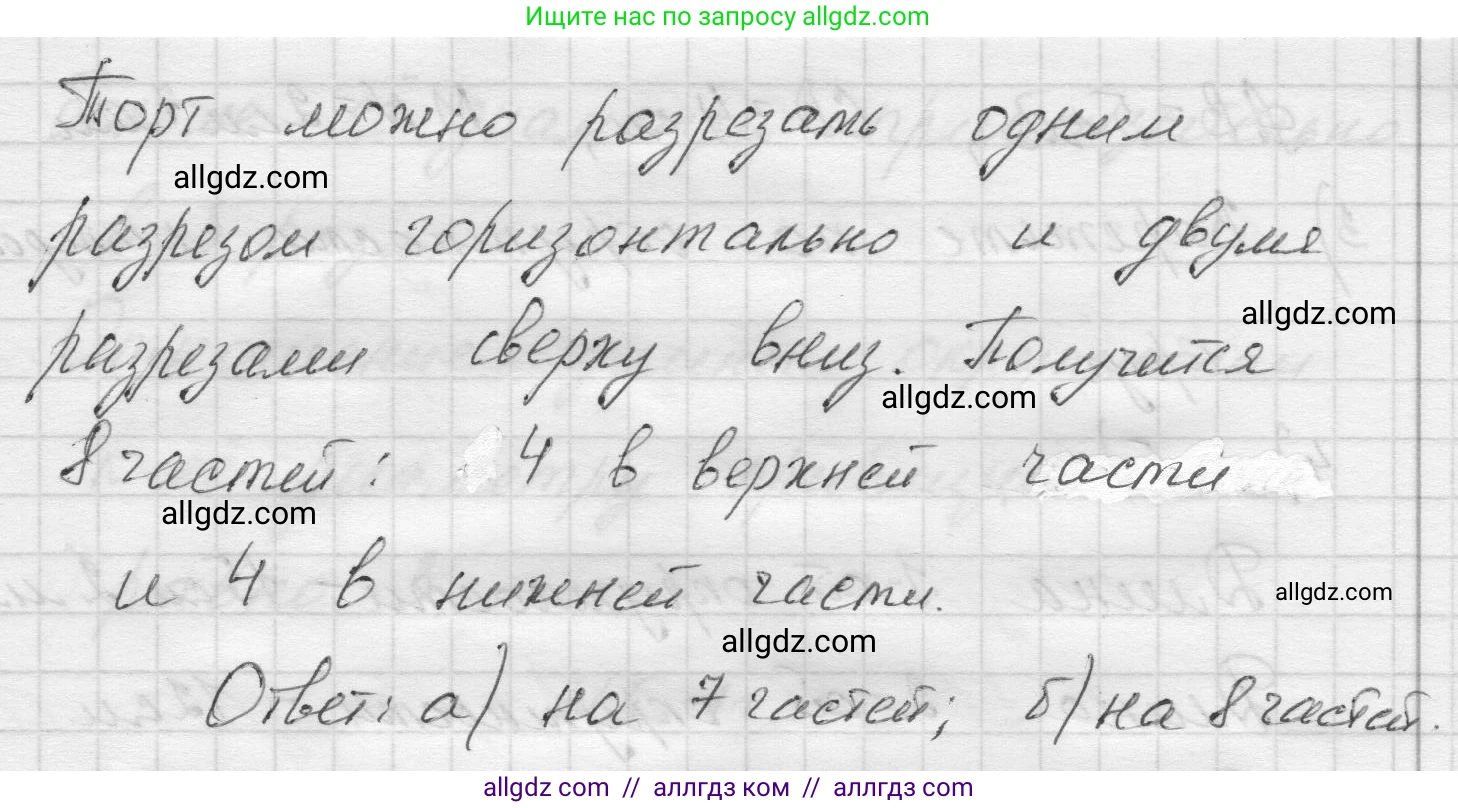 Ищите нас по запросу allgdz.com
Торт можно разрезать одним
allgdz.com
разрезом горизонтально и двумя
allgdz.com
разрезами сверху вниз. Получится
allgdz.com
8 частей: 4 в верхней части
allgdz.com
и 4 в нижней части.
allgdz.com
allgdz.com
Ответ: а) на 7 частей; б) на 8 частей.
allgdz.com // аллгдз ком // аллгдз.com